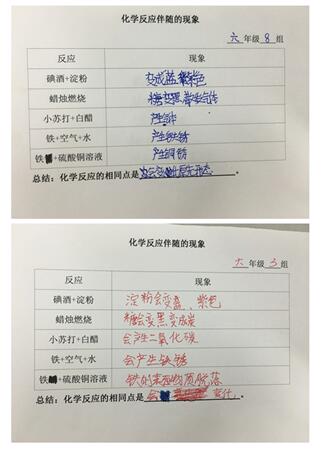 化学反应伴随的现象
六 年级 8 组
反应 现象
碘酒+淀粉 变成蓝紫色
蜡烛燃烧 糖变黑
小苏打+白醋 产生气体
铁+空气+水 产生铁锈
铁+硫酸铜溶液 产生铜锈
总结:化学反应的相同点是
化学反应伴随的现象
六 年级 3 组
反应 现象
碘酒+淀粉 淀粉会变蓝、紫色
蜡烛燃烧 糖会变黑变成炭
小苏打+白醋 会产生二氧化碳
铁+空气+水 会产生铁锈
铁+硫酸铜溶液 铁的表面物质脱落
总结:化学反应的相同点是 会 变化 。